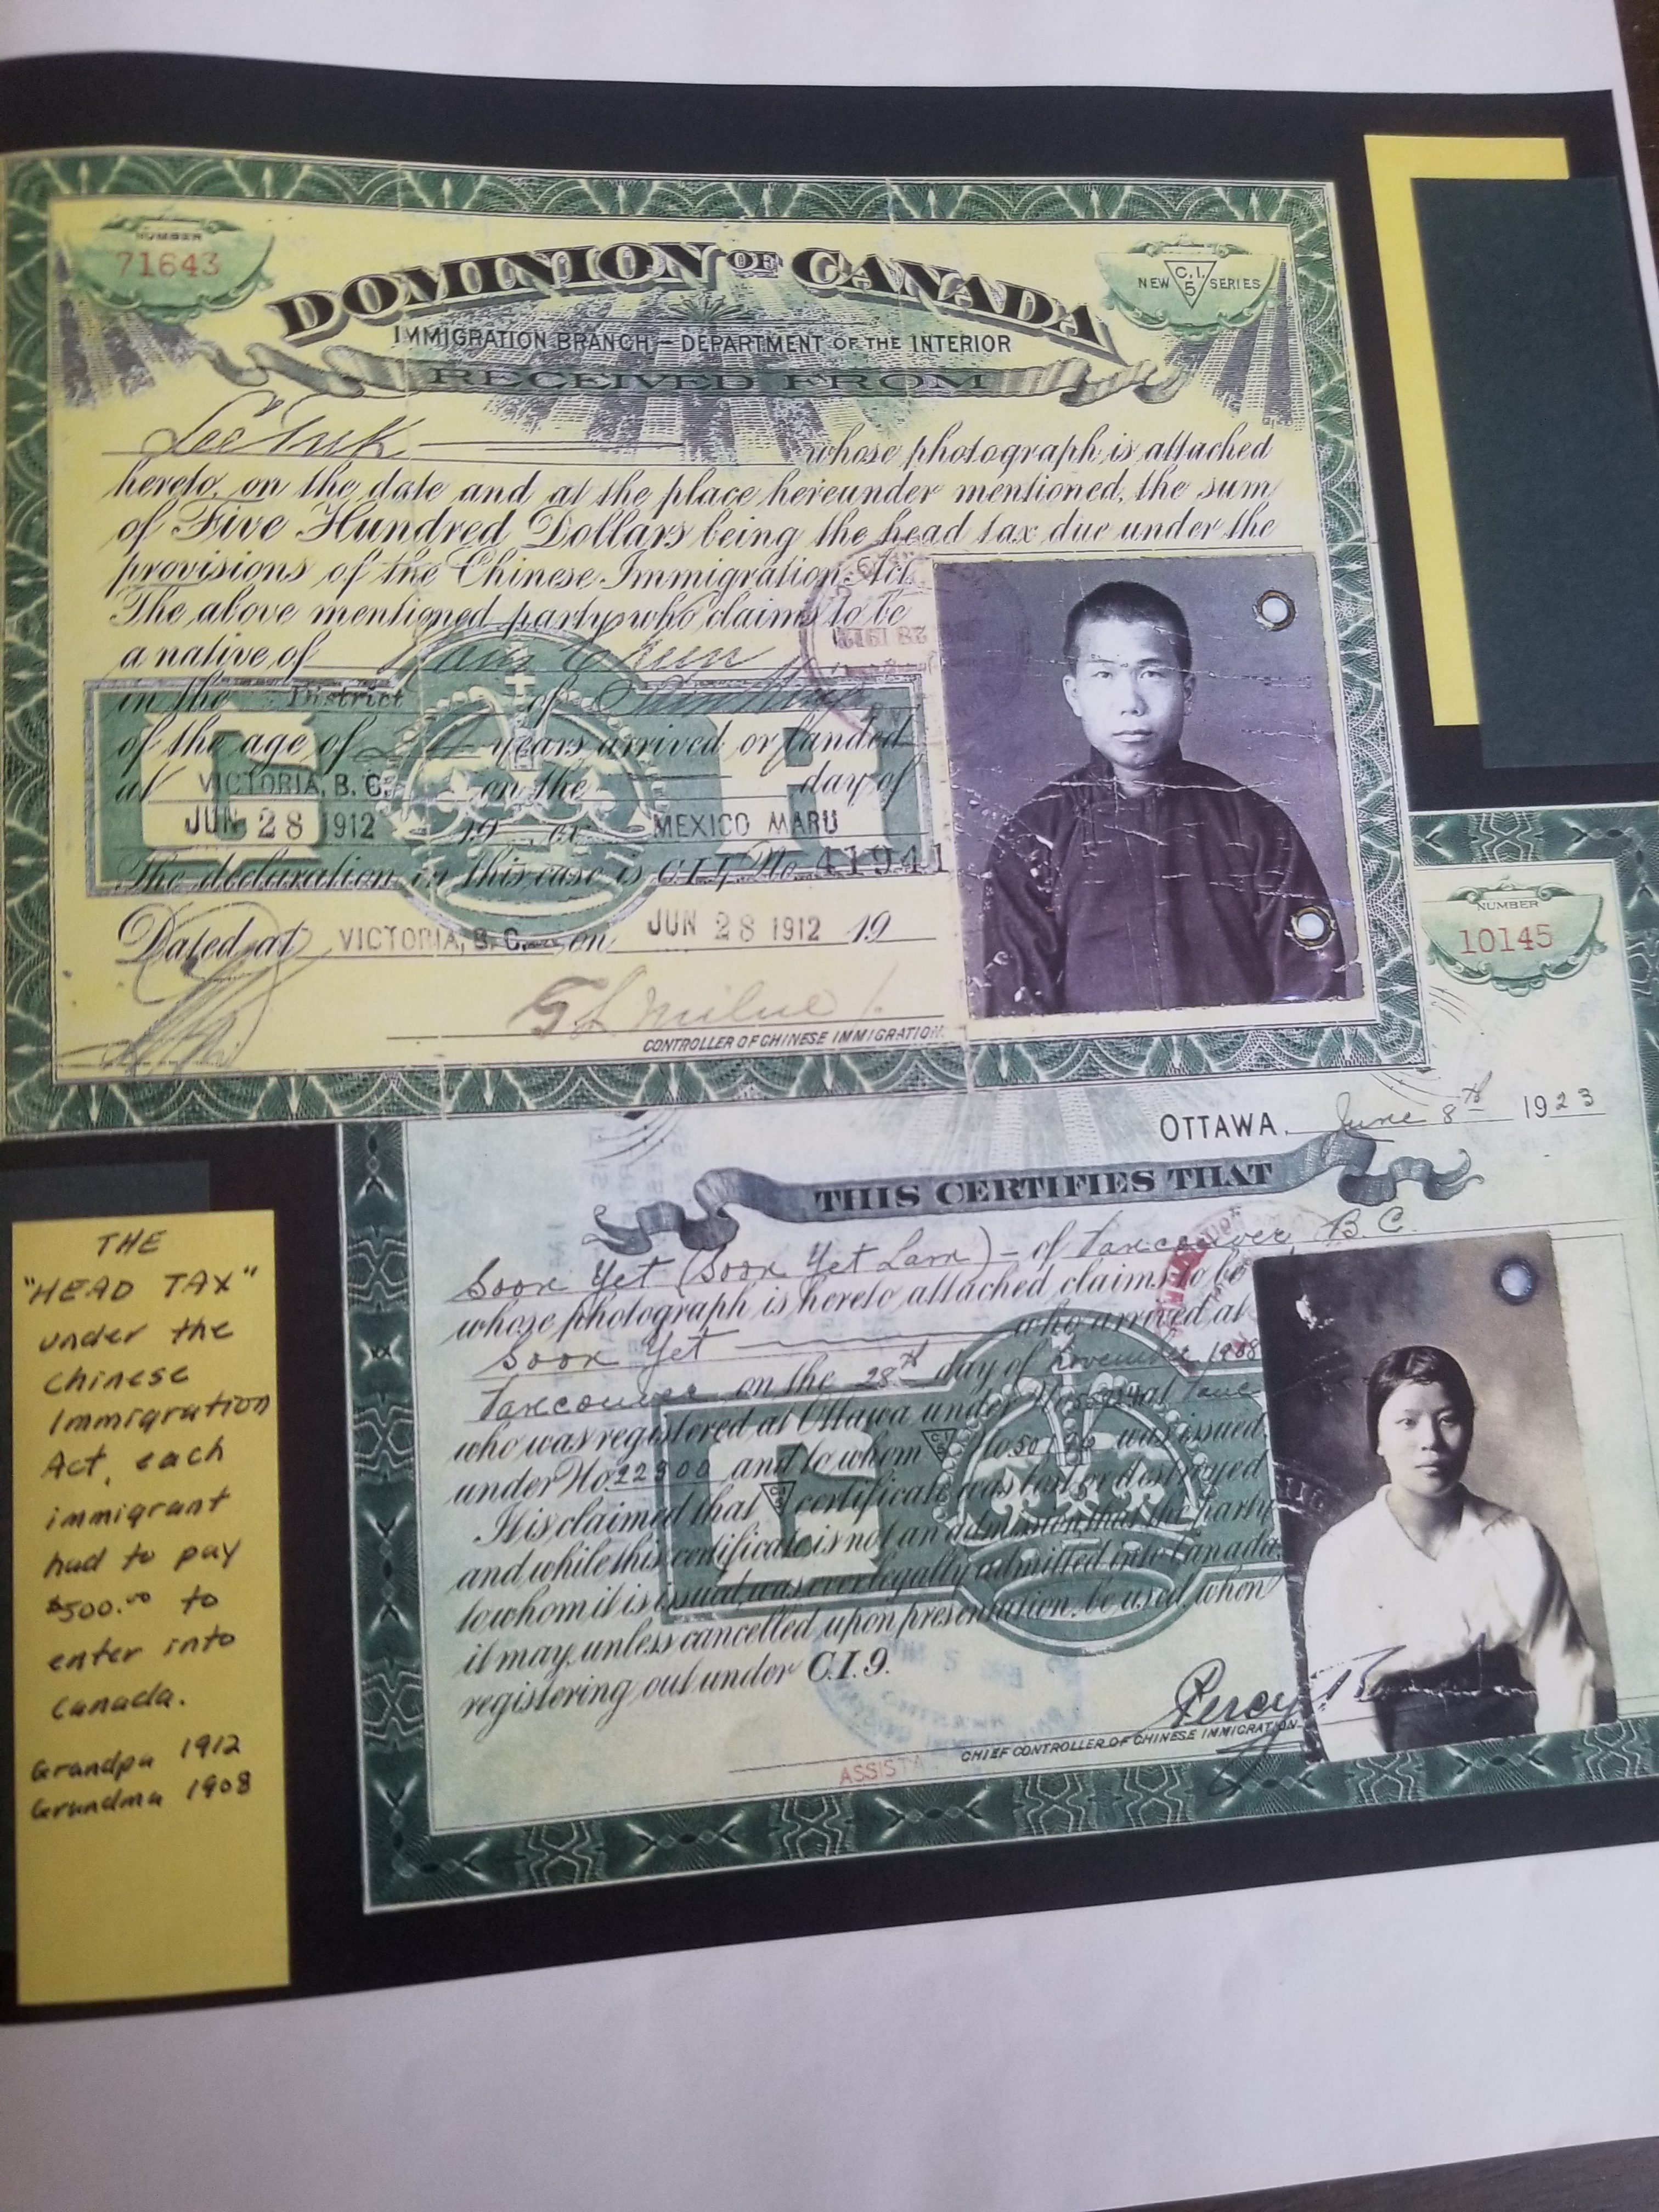 NUMBER
71643
DOMINION OF CANADA
NEW C.I. 5 SERIES
IMMIGRATION BRANCH - DEPARTMENT OF THE INTERIOR
RECEIVED FROM
Lee whose photograph is attached
hereto, on the date and at the place hereunder mentioned, the sum
of Five Hundred Dollars being the head tax due under the
provisions of the Chinese Immigration Act.
The above mentioned party who claims to be
a native of
in the District of
of the age of years arrived or landed
at VICTORIA, B.C. on the day of
JUN 28 1912 19 ex MEXICO MARU
The declaration in this case is C.I.4, No. 41941
Dated at VICTORIA, B.C. on JUN 28 1912 19
G L Milne
CONTROLLER OF CHINESE IMMIGRATION.
NUMBER
10145
OTTAWA, June 8th 1923
THIS CERTIFIES THAT
Soon Yet (Soon Yet Lam) - of Vancouver B.C.
whose photograph is hereto attached claims to be
Soon Yet who arrived at
Vancouver on the 28th day of November 1908
who was registered at Ottawa under No at
under No 22900 and to whom C.I.5 No was issued.
It is claimed that C.I.5 certificate was lost or destroyed
and while this certificate is not an admission that the party
to whom it is issued, was ever legally admitted into Canada
it may, unless cancelled upon presentation, be used when
registering out under C.I.9.
Percy
ASSISTA
CHIEF CONTROLLER OF CHINESE IMMIGRATION
THE
"HEAD TAX"
under the
Chinese
Immigration
Act, each
immigrant
had to pay
$500.00 to
enter into
Canada.
Grandpa 1912
Grandma 1908